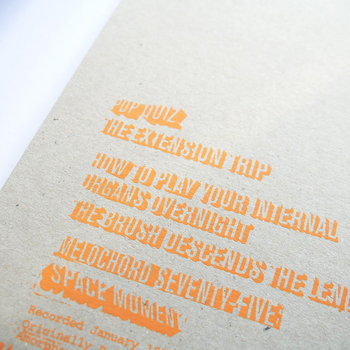 POP QUIZ
THE EXTENSION TRIP
HOW TO PLAY YOUR INTERNAL
ORGANS OVERNIGHT
THE BRUSH DESCENDS THE LEN
MELOCHORD SEVENTY-FIVE
SPACE MOMENT
Recorded January 1
Originally